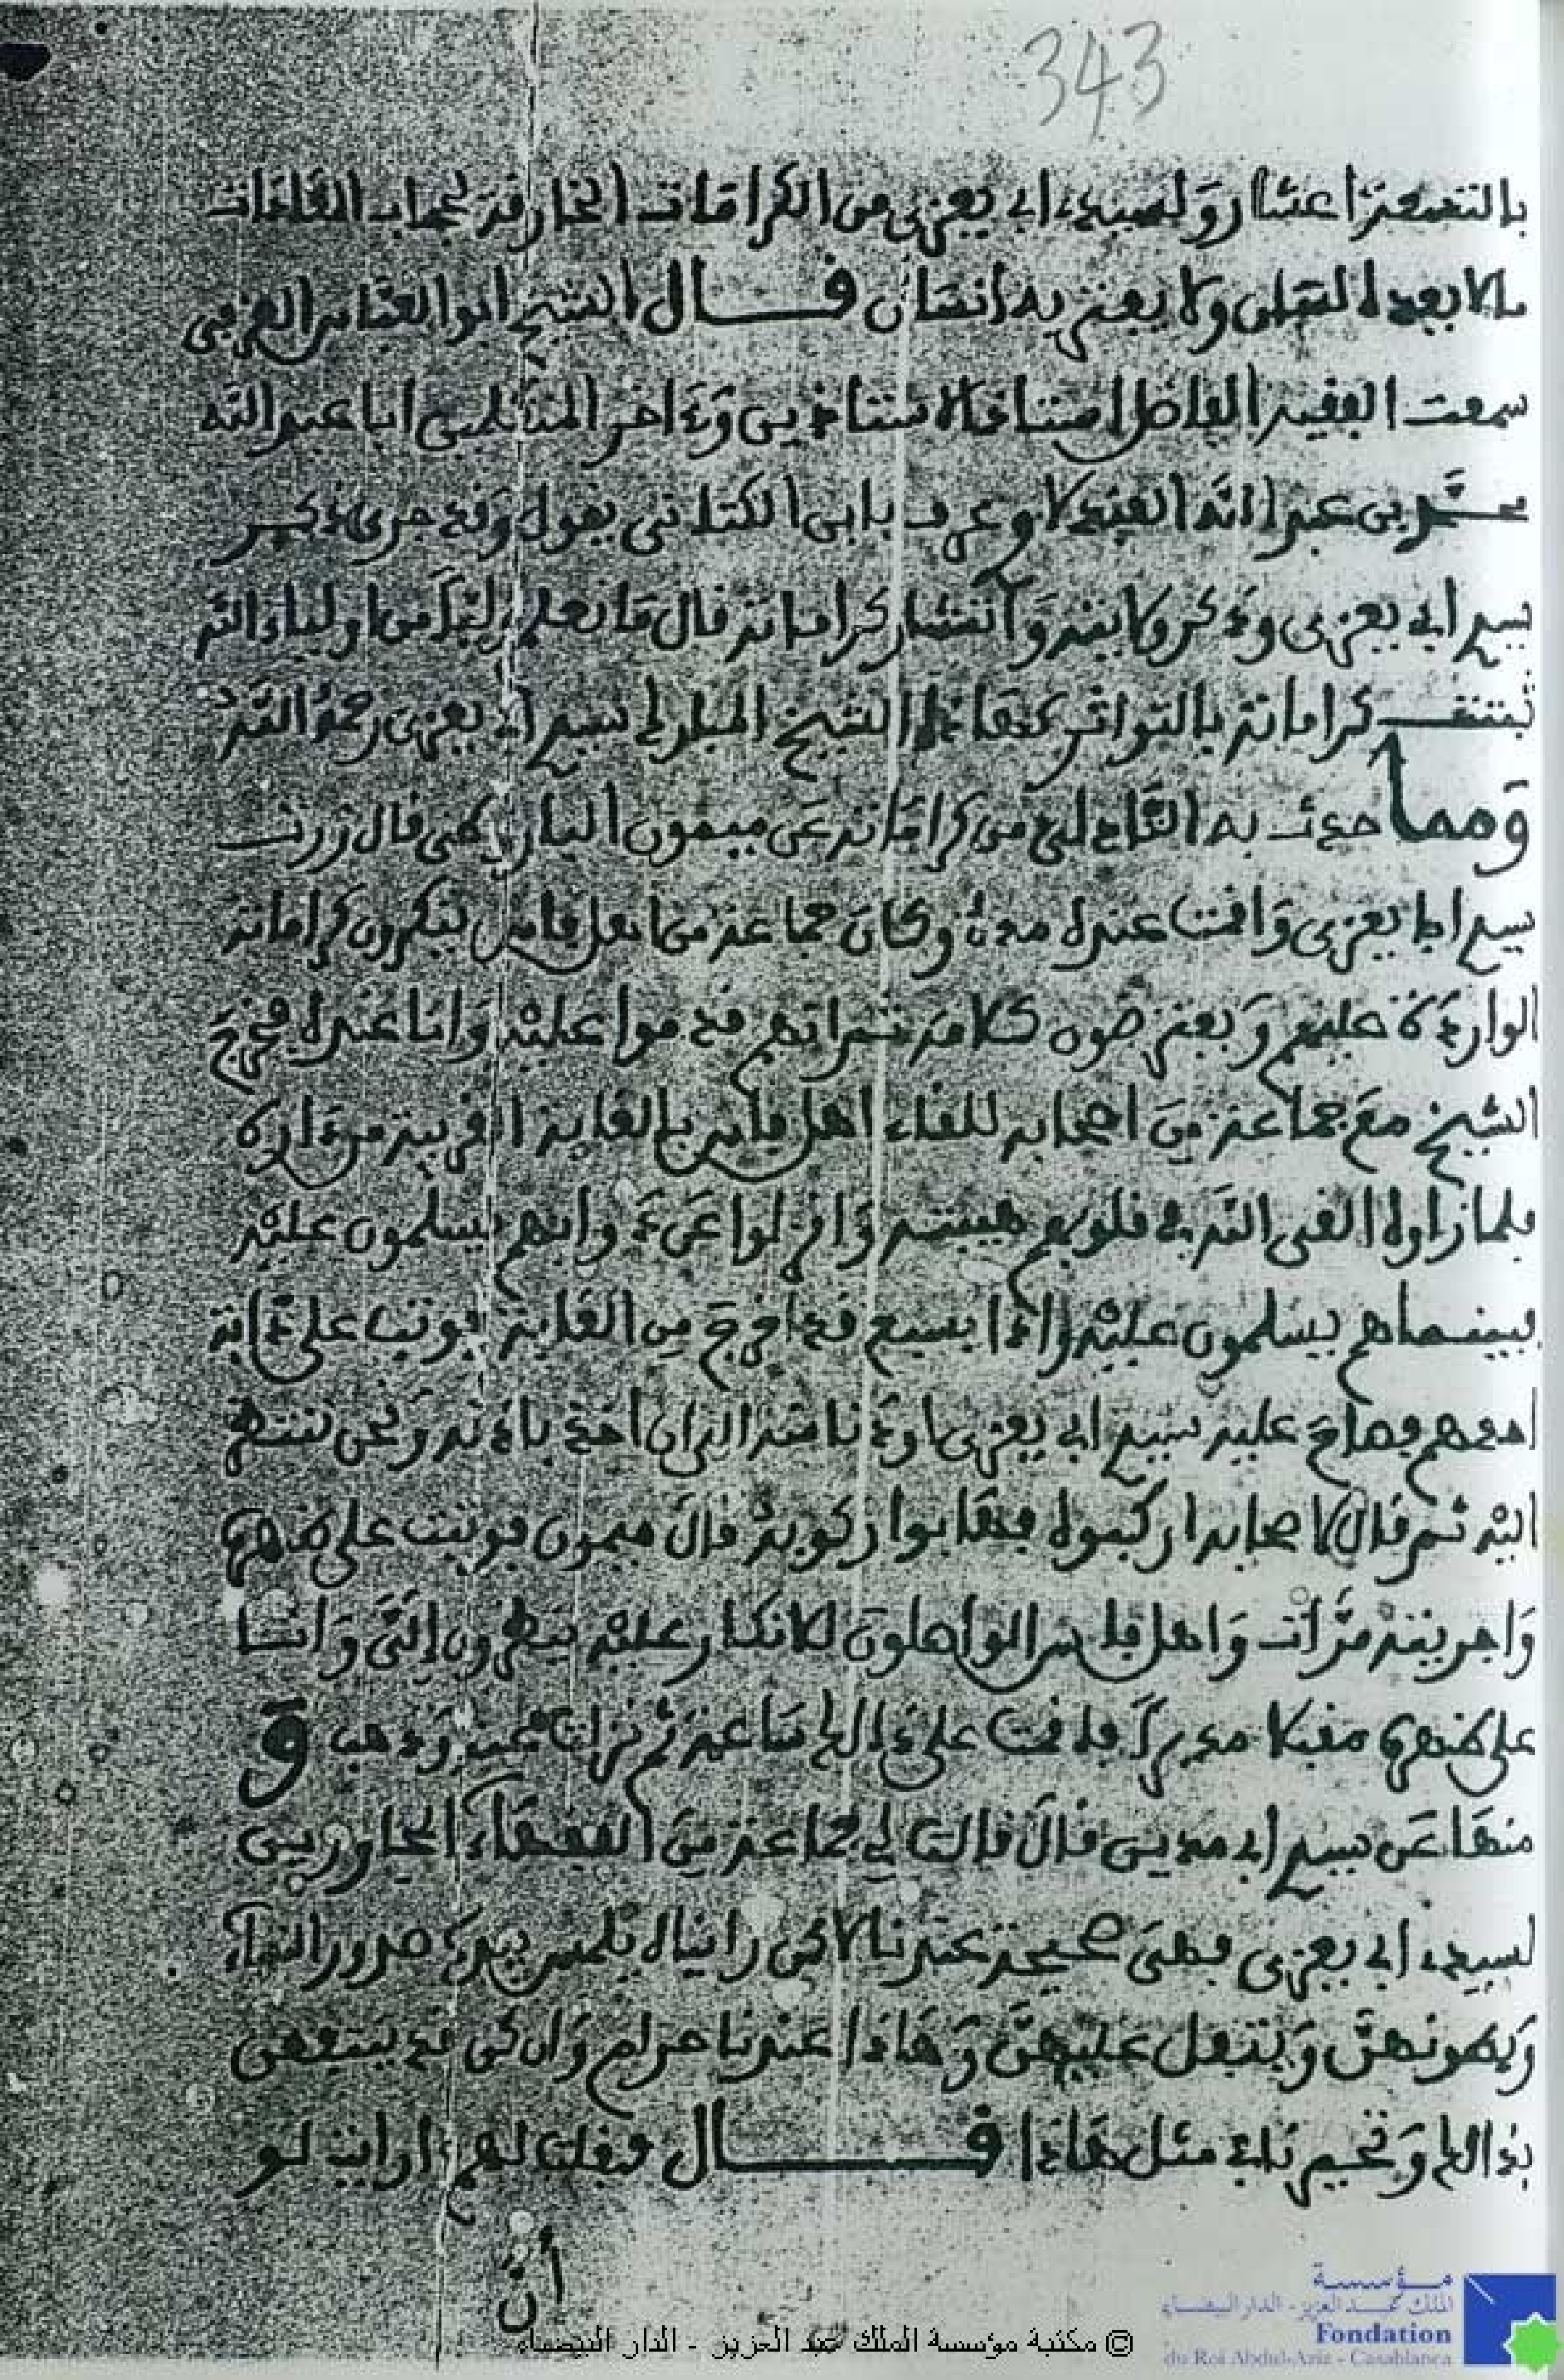 343
بالتسعة اعشار ولسيدي ابي يعزى من الكرامات الخارقة لحجاب العادات
ما لا يعده لسان ولا يعتريه انسان قال الشيخ ابو العباس العزفي
سمعت الفقيه الفاضل استاذ الاستاذين وءاخر المتكلمين ابا عبد الله
محمد بن عبد الله الفندلاوي عرف بابن الكتاني يقول وقد جرى ذكر
سيدي ابي يعزى وذكر ولايته وانتشار كراماته قال ما نعلم رجلا من اولياء الله
ثبتت كراماته بالتواتر كهاذا الشيخ المبارك سيدي ابي يعزى رحمه الله
ومما حدث به التادلي من كراماته عن ميمون قال زرت
سيدي ابا يعزى واقمت عنده مدة وكان جماعة من اهل فاس ينكرون كراماته
الواردة عليهم ويعترضون كلامه ثم انهم قدموا عليه وانا عنده فخرج
الشيخ مع جماعة من اصحابه للقاء اهل فاس بالغابة القريبة من داره
فلما راوه القى الله في قلوبهم هيبته ونزلوا عن دوابهم يسلمون عليه
فبينما هم يسلمون عليه واذا بسبع قد خرج من الغابة فوثب على دابة
احدهم فصاح عليه سيدي ابي يعزى ودنا منه الى ان اخذ باذنه ونحن ننتظر
اليه ثم قال لاصحابه اركبوه فهابوا ركوبه قال ميمون فوثبت على ظهره
واجريته مرات واهل فاس الواصلون للانكار عليه ينظرون الي وانا
على ظهره مقبلا مدبرا فاقمت على ذالك ساعة ثم نزلت عنه وذهب و
منها عن سيدي ابي مدين قال قالت لي جماعة من الفقهاء المجاورين
لسيدي ابي يعزى فهي صحيحة عندنا لاكن راناه يلمس بيده صدور النساء
وبطونهن ويتفل عليهن وهاذا عندنا حرام وان كن قد ينتفعن
بذالك وتحير ناء في مثل هاذا قال فقلت لهم ارايتم لو
أن
© مكتبة مؤسسة الملك عبد العزيز - الدار البيضاء
مؤسسة
الملك عبد العزيز - الدار البيضاء
Fondation
du Roi Abdul-Aziz - Casablanca